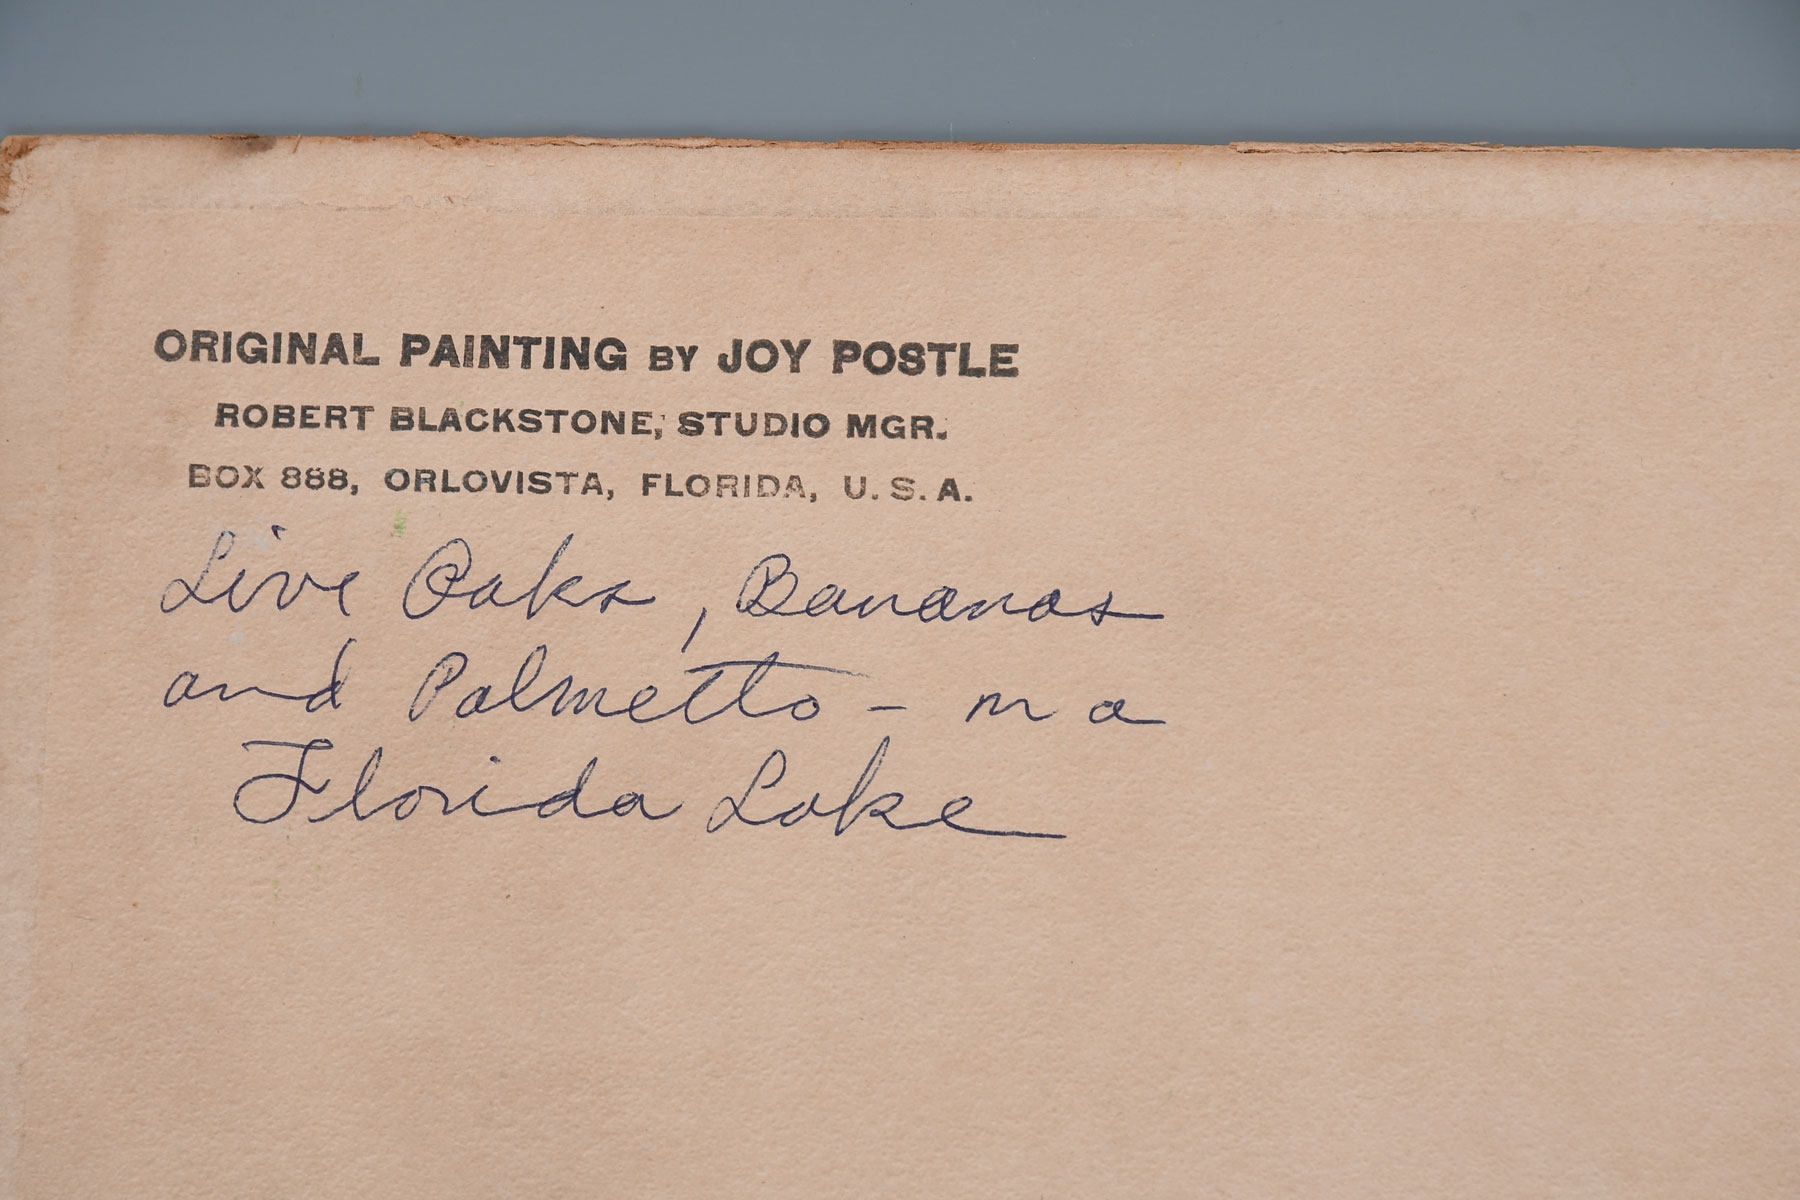 ORIGINAL PAINTING BY JOY POSTLE
ROBERT BLACKSTONE, STUDIO MGR.
BOX 888, ORLOVISTA, FLORIDA, U. S. A.
Live Oaks, Bananas
and Palmetto - on a
Florida Lake